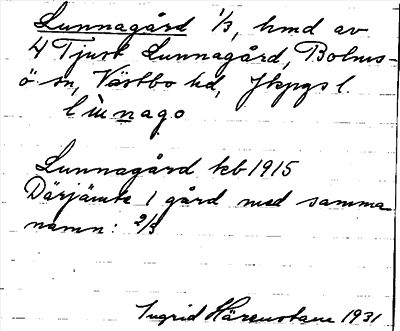 Lunnagård 1/3, hmd av
4 Tjust Lunnagård, Bolms-
ö sn, Västbo hd, Jkpgs l.
lùnago
Lunnagård kb 1915
Därjämte 1 gård med samma
namn: 2/3
Ingrid Härenstam 1931